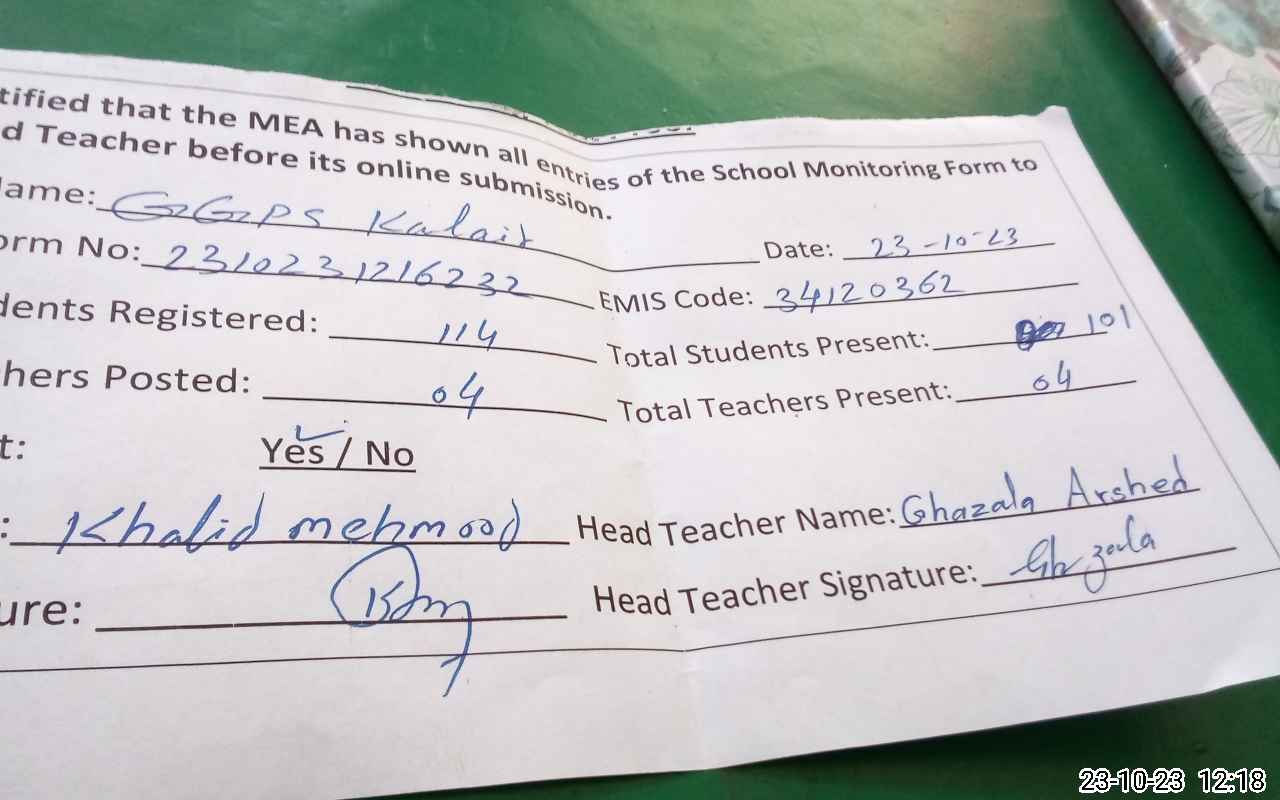 tified that the MEA has shown all entries of the School Monitoring Form to
d Teacher before its online submission.
ame: GGPS Kalait Date: 23-10-23
orm No: 2310231216232 EMIS Code: 34120362
dents Registered: 114 Total Students Present: 101
hers Posted: 04 Total Teachers Present: 04
t: Yes / No
: Khalid mehmood Head Teacher Name: Ghazala Arshed
ure: Head Teacher Signature: Ghzala
23-10-23 12:18